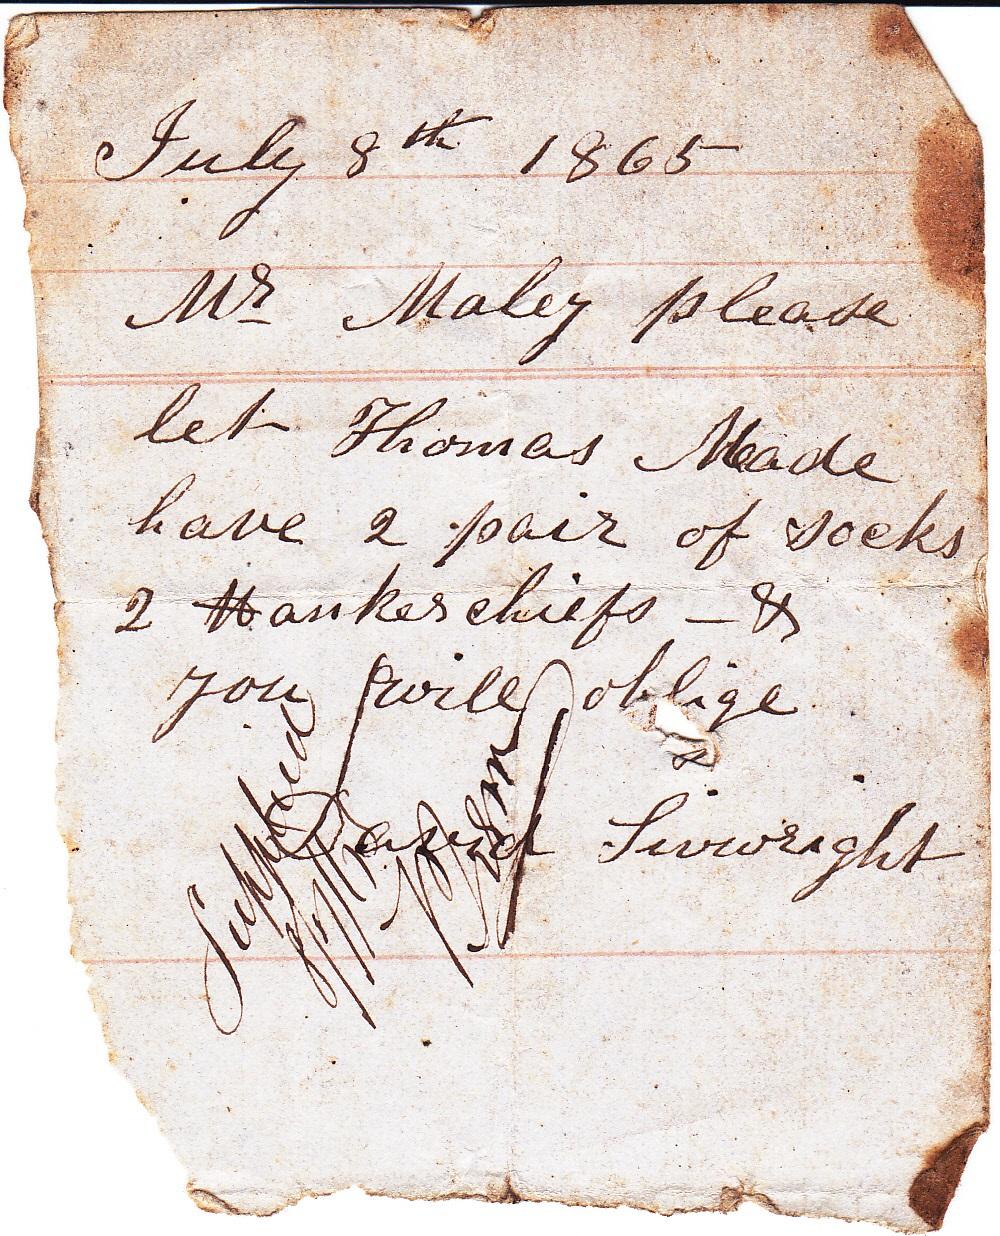 July 8th 1865
Mr Maley please
let Thomas Meade
have 2 pair of socks
2 Hankerchiefs - &
you will oblige
David Sivwright
Supplied